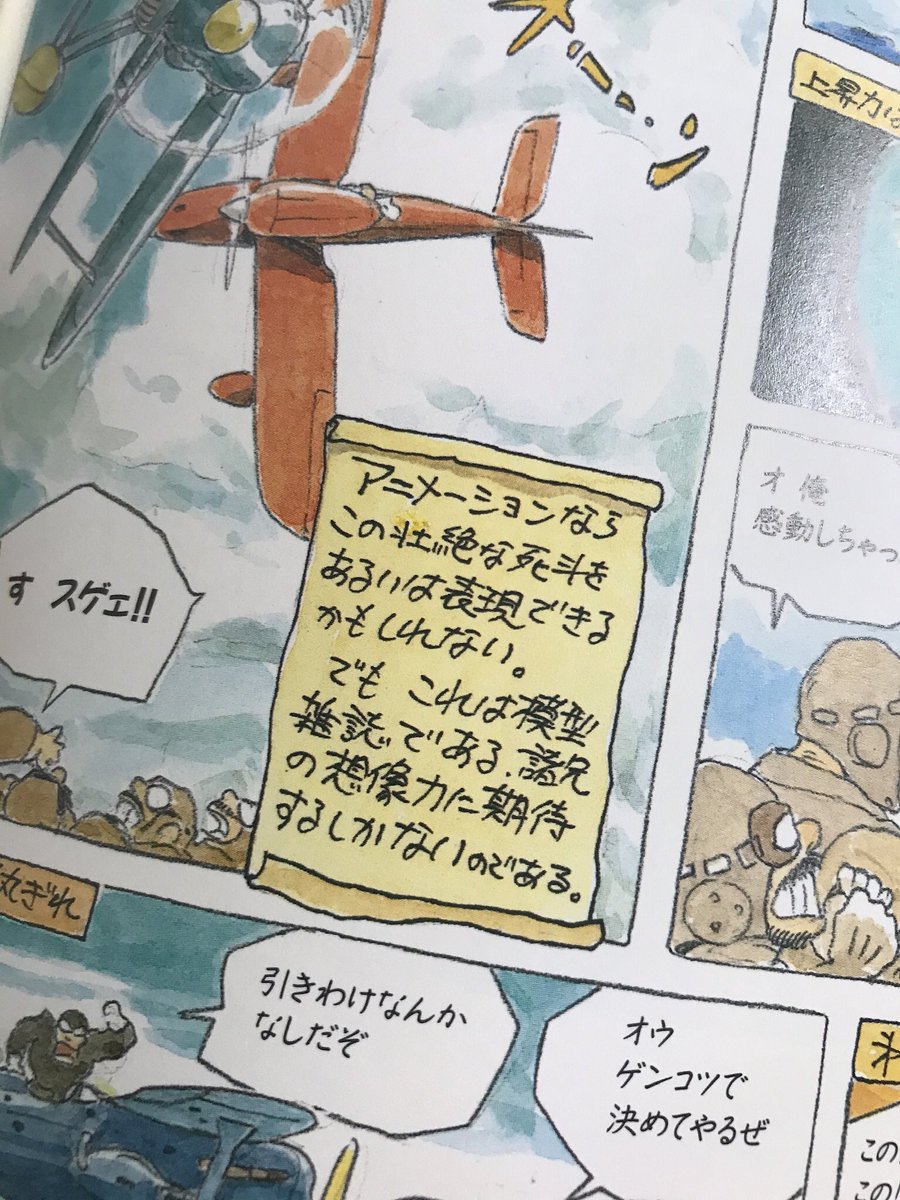 上昇力は
オ 俺
感動しちゃっ
アニメーションなら
この壮絶な死斗を
あるいは表現できる
かもしれない。
でも これは模型
雑誌である、諸兄
の想像力に期待
するしかないのである。
す スゲェ!!
丸ぎれ
引きわけなんか
なしだぞ
オウ
ゲンコツで
決めてやるぜ
この